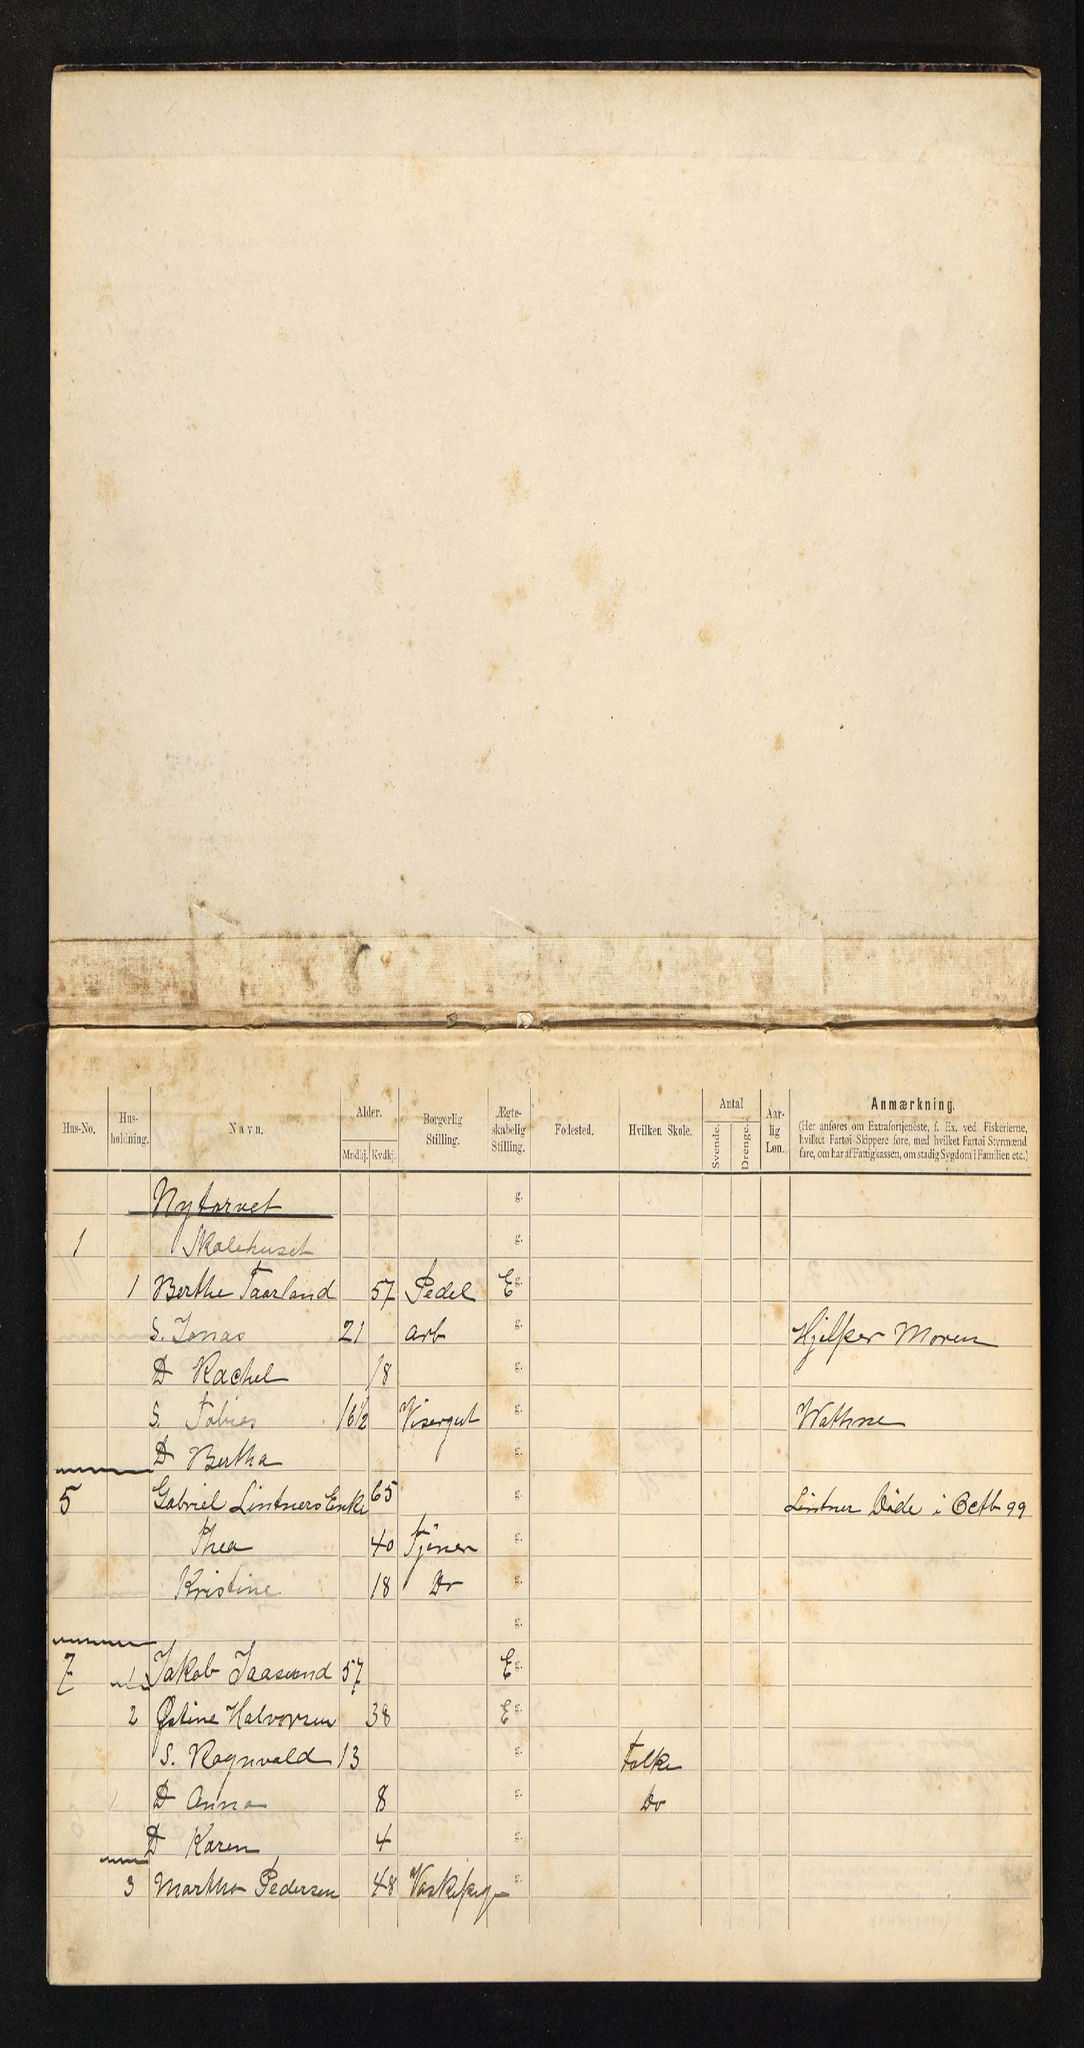 Hus-No. Hus-holdning. Navn. Alder. Mndkj. Kvdkj. Borgerlig Stilling. Ægte-skabelig Stilling. Fødested. Hvilken Skole. Antal Svende. Drenge. Aar-lig Løn. Anmærkning.
(Her anføres om Extrafortjeneste, f. Ex. ved Fiskerierne, hvilket Fartøi Skippere føre, med hvilket Fartøi Styrmænd fare, om har af Fattigkassen, om stadig Sygdom i Familien etc.)
Nytorvet g.
1 Skolehuset g.
1 Berthe Taarland 57 Pedel E g.
S. Jonas 21 arb g. Hjelper Moren
D Rachel 18 g.
S. Tobias 16 1/2 Visergut g. Wathne
D Bertha g.
5 Gabriel Lintners Enke 65 g. Lintner Døde i Octb 99
Thea 40 Tjener g.
Kristine 18 Do g.
g.
7 1 Jakob Jaasund 57 E g.
2 Østine Halvorsen 38 E g.
S. Ragnvald 13 g. Folke
D Anna 8 g. Do
D Karen 4 g.
3 Martha Pedersen 48 Vaskepige g.